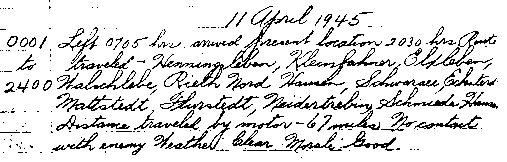 11 April 1945
0001 Left 0705 hrs arrived present location 2030 hrs Route
to traveled - Henningsleben, Kleinfahner, Elxleben,
2400 Walschlebe, Rieth Nord Hausen, Schwarsee, Ecksterd
Mattstedt, Flurstedt, Neidertrebin, Schmiede Hausen
Distance traveled by motor - 67 miles No contact
with enemy Weather Clear Morale Good.